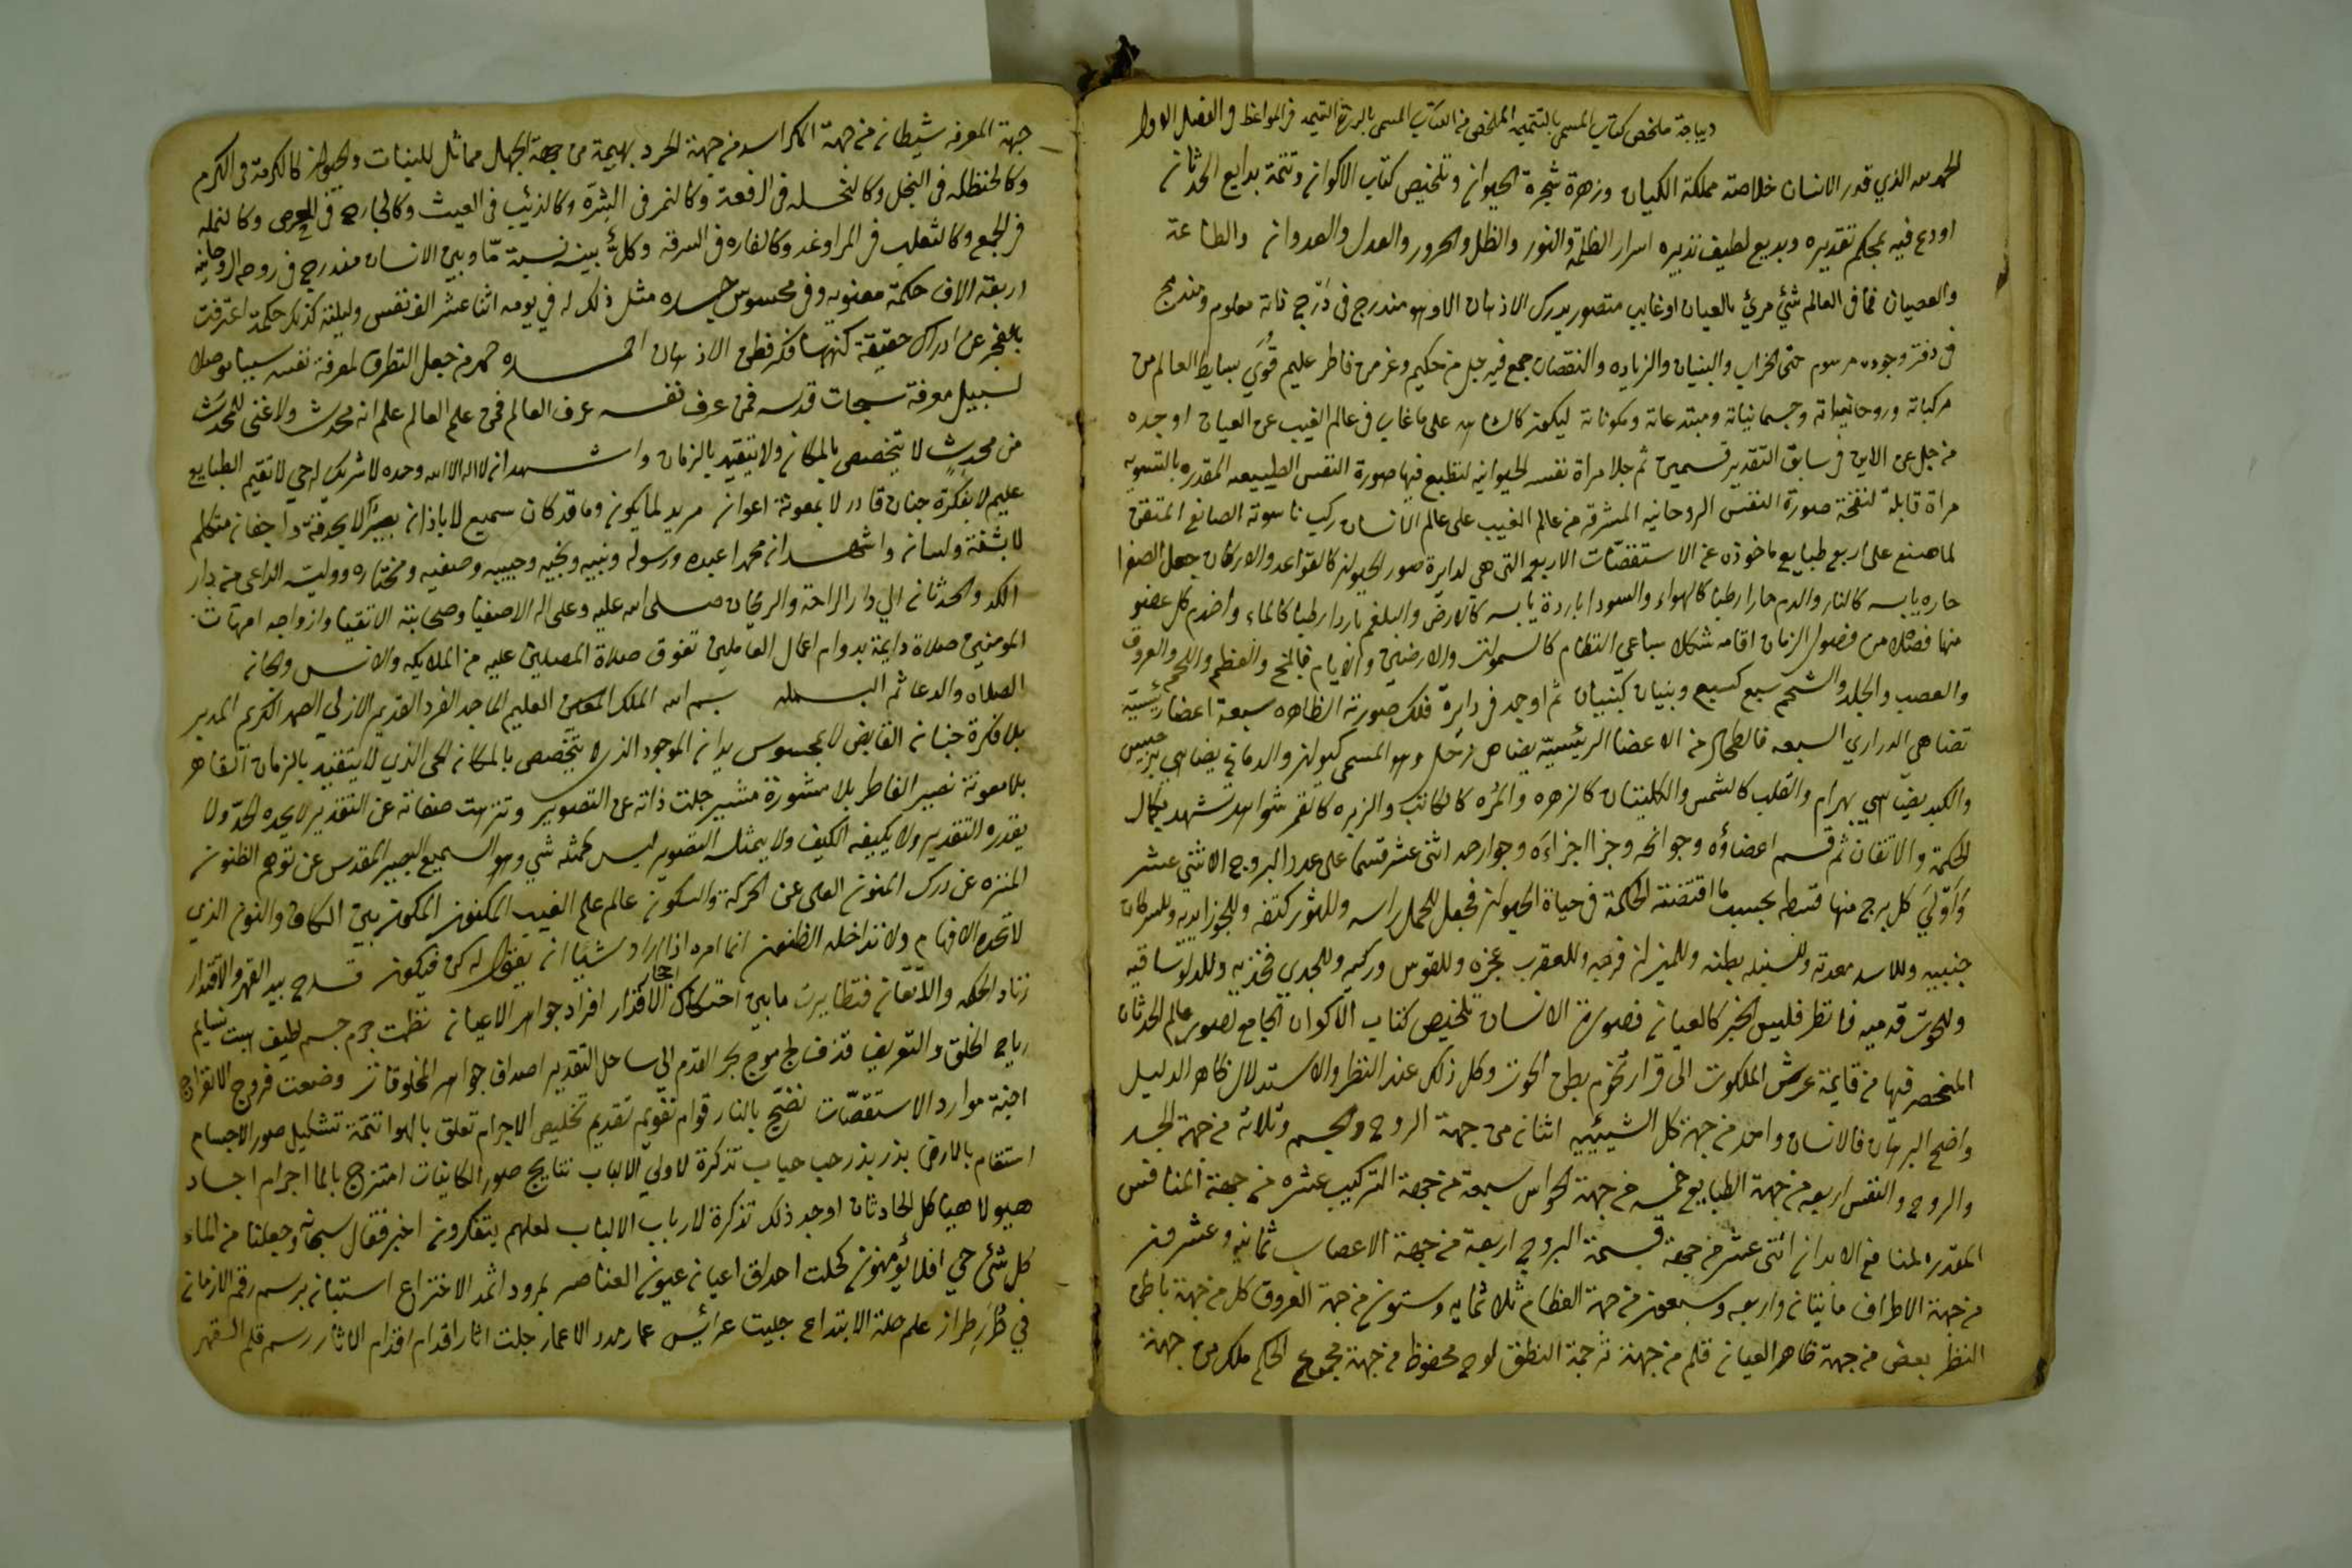 ديباجة ملخص كتاب المسمى بالتتميمه الملخص من الكتاب المسمى بالدرة اليتيمه في المواعظ والفصل الاول
الحمد لله الذي قدر الانسان خلاصة مملكة الكيان وزهرة شجرة الحيوان وتلخيص كتاب الاكوان وتتمة بدايع الحدثان
اودع فيه بمحكم تقديره وبديع لطيف تدبيره اسرار الظلمة والنور والظل والحرور والعدل والعدوان والطاعة
والعصيان فما في العالم شيء مرئ بالعيان او غايب متصور يدرك الاذهان الا وهو مندرج في درج ذاته معلوم ومندمج
في دفتر وجوده مرسوم حتى الخراب والبنيان والزياده والنقصان جمع فيه جل من حكيم وعز من فاطر عليم قوى بسايط العالم من
مركباته وروحانياته وجسمانياته ومبتدعاته ومكوناته ليكون كالشاهد على ما غاب في عالم الغيب عن العيان اوجده
من جل عن الاين في سابق التقدير قسمين ثم جلا مراة نفسه الحيوانيه لتطبع فيها صورة النفس الطبيعيه المقدره بالتسويه
مراة قابلة لنفخة صورة النفس الروحانيه المشرقه من عالم الغيب على عالم الانسان ركب ناسوته الصانع المتقن
لما صنع على اربع طبايع ماخوذه عن الاستقصّات الاربع التي هي لدايرة صور الحيوان كالقواعد والاركان جعل الصفرا
حاره يابسه كالنار والدم حارا رطبا كالهواء والسودا باردة يابسه كالارض والبلغم باردا رطبا كالماء واخدم كل عضو
منها فصلا من فصول الزمان اقامه شكلا سباعي النظام كالسموات والارضين والايام فالمخ والعظم واللحم والعروق
والعصب والجلد والشحم سبع كسبع وبنيان كبنيان ثم اوجد في دايرة فلك صورته الظاهره سبعة اعضا رئيسيه
تضاهي الدراري السبعه فالطحال من الاعضا الرئيسيّه يضاهي زحل وهو المسمى كيوان والدماغ يضاهي برجيس
والكبد يضاهي بهرام والقلب كالشمس والكليتان كالزهره والمره كالكاتب والريه كالقمر شواهد تشهد بكمال
الحكمة والاتقان ثم قسم اعضاؤه وجوانحه وجزا اجزاءه وجوارحه اثنى عشر قسما على عدد البروج الاثني عشر
وأولي كل برج منها قسطه بحسب ما اقتضته الحكمة في حياة الحيوان فجعل للحمل راسه وللثور كتفه وللجوزا يديه وللسرطان
جنبيه وللاسد معدته وللسنبله بطنه وللميزان فرجه وللعقرب عجزه وللقوس وركيه وللجدي فخذيه وللدلو ساقيه
وللحوت قدميه فانظر فليس الخبر كالعيان فصورة الانسان تلخيص كتاب الاكوان الجامع لصور عالم الحدثان
المنحصر فيها من قايمة عرش الملكوت الى قرار تخوم بطن الحوت وكل ذلك عند النظر والاستدلال ظاهر الدليل
واضح البرهان فالانسان واحد من جهة كل الشيئيه اثنان من جهة الروح والجسم وثلاثه من جهة الجسد
والروح والنفس اربعه من جهة الطبايع خمسه من جهة الحواس سبعه من جهة التركيب عشره من جهة المنافس
المقدره لمنافع الابدان اثنى عشر من جهة قسمة البروج اربعة من جهة الاعصاب ثمانيه وعشرون
من جهة الاطراف مائتان واربعه وسبعون من جهة العظام ثلاثمايه وستون من جهة العروق كل من جهة باطن
النظر بعض من جهة ظاهر العيان قلم من جهة ترجمة النطق لوح محفوظ من جهة مجموع الحكم ملك من جهة
جهة المعرفه شيطان من جهة المكر اسد من جهة الحرد بهيمة من جهة الجهل مماثل للنبات والحيوان كالكرمة في الكرم
وكالحنظله في البخل وكالنخله في الرفعة وكالنمر في الشره وكالذئب في العيث وكالجارح في الحرص وكالنمله
في الجمع وكالثعلب في المراوغه وكالفاره في السرقه وكلٌ بينه نسبة ما وبين الانسان مندرج في روحه الروحانيه
اربعة الاف حكمة معنويه وفي محسوس جسده مثل ذلك له في يومه اثنا عشر الف نفس وليلته كذلك حكمة اعترفت
بالعجز عن ادراك حقيقة كنهها فكر فطن الاذهان احمده حمد من جعل التطرق لمعرفة نفسه سببا موصلا
لسبيل معرفة سبحات قدسه فمن عرف نفسه عرف العالم فمن علم العالم علم انه محدث ولا غنى للمحدَث
من محدِث لا يتخصص بالمكان ولا يتقيد بالزمان واشهد ان لا اله الا الله وحده لا شريك له حي لا تقيم الطبايع
عليم لا بفكرة جنان قادر لا بمعونة اعوان مريد لما يكون وما قد كان سميع لا باذان بصير لا بحدقة واجفان متكلم
لا بشفة ولسان واشهد ان محمدا عبده ورسوله ونبيه ونجيه وحبيبه وصفيه ومختاره ووليه الداعي من دار
الكد والحدثان الي دار الراحة والريحان صلى الله عليه وعلى اله الاصفيا وصحابته الاتقيا وازواجه امهات
المومنين صلاة دايمة بدوام اعمال العاملين تفوق صلاة المصلين عليه من الملايكه والانس والجان
الصلاه والدعا ثم البسمله بسم الله الملك المعين العليم الماجد الفرد القديم الازلي الصمد الكريم المدبر
بلا فكرة جنان القابض لا بمحسوس يدان الموجود الذي لا يتخصص بالمكان الحى الذي لا يتقيد بالزمان القاهر
بلا معونة نصير الفاطر بلا مشورة مشير جلت ذاته عن التصوير وتنزهت صفاته عن التقدير لا يحده الحد ولا
يقدره التقدير ولا يكيفه الكيف ولا يمثله التصوير ليس كمثله شي وهو السميع البصير المقدس عن توهم الظنون
المنزه عن درك المنون العلى عن الحركة والسكون عالم علم الغيب المكنون المكون بين الكاف والنون الذي
لا تحده الافهام ولا تداخله الظنون انما امره اذا اراد شيئا ان يقول له كن فيكون قدح بيد القهر والاقتدار
زناد الحكمه والاتقان فتطايرت ما بين احتكاك احجار الاقدار افراد جواهر الاعيان نظمت جرم جسم لطيف هبت نسايم
رياح الخلق والتعريف قذف طامي موج بحر القدم الي ساحل التقدير اصداف جواهر المخلوقات وضعت فروج الاتقراج
اجنة موارد الاستقصّات نضّج بالنار قوام تقويم تقديم تخليص الاجرام تعلق بالهوا تتمة تشكيل صور الاجسام
استقام بالارض بذر بذر حب حباب تذكرة لاولي الالباب نتايج صور الكاينات امتزج بالما اجرام اجساد
هيولا هياكل الحادثات اوجد ذلك تذكرة لارباب الالباب لعلهم يتفكرون اخبر فقال سبحانه وجعلنا من الماء
كل شئ حي افلا يؤمنون كحلت احداق اعيان عيون العناصر بمرود اثمد الاختراع استبان برسم رقم الازمان
في طُرَز طراز علم حلة الابتداع جليت عرائس عمار مدد الاعمار جلت اثار اقدام اقدام الاثار رسم قلم القهر